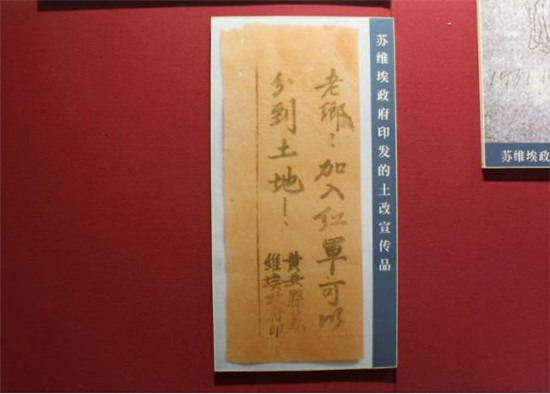 苏维埃政府印发的土改宣传品
老鄉：加入红軍可以
分到土地！
黄安縣蘇
維埃政府印
1931
苏维埃政